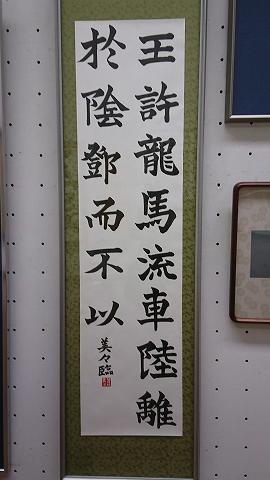 王許龍馬流車陸離
於陰鄧而不以
美々臨